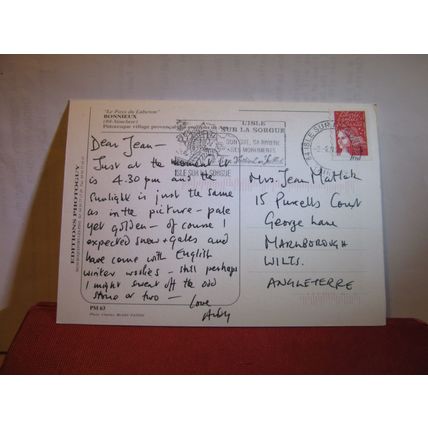 "Le Pays du Luberon"
BONNIEUX
(84-Vaucluse)
Pittoresque village provençal
L'ISLE
SUR LA SORGUE
SON SITE, SA RIVIERE
SES MONUMENTS
ISLE SUR LA SORGUE
84 ISLE SUR
Dear Jean -
Just at the moment it
is 4.30 pm and the
sunlight is just the same
as in the picture - pale
yet golden - of course I
expected snow + gales and
have come with English
winter woolies - still perhaps
I might sweat off the odd
stone or two -
Love
Mrs. Jean
15 Purcells Court
George Lane
MARLBOROUGH
WILTS.
ANGLETERRE
EDITIONS PHOTOGUY
PM 63